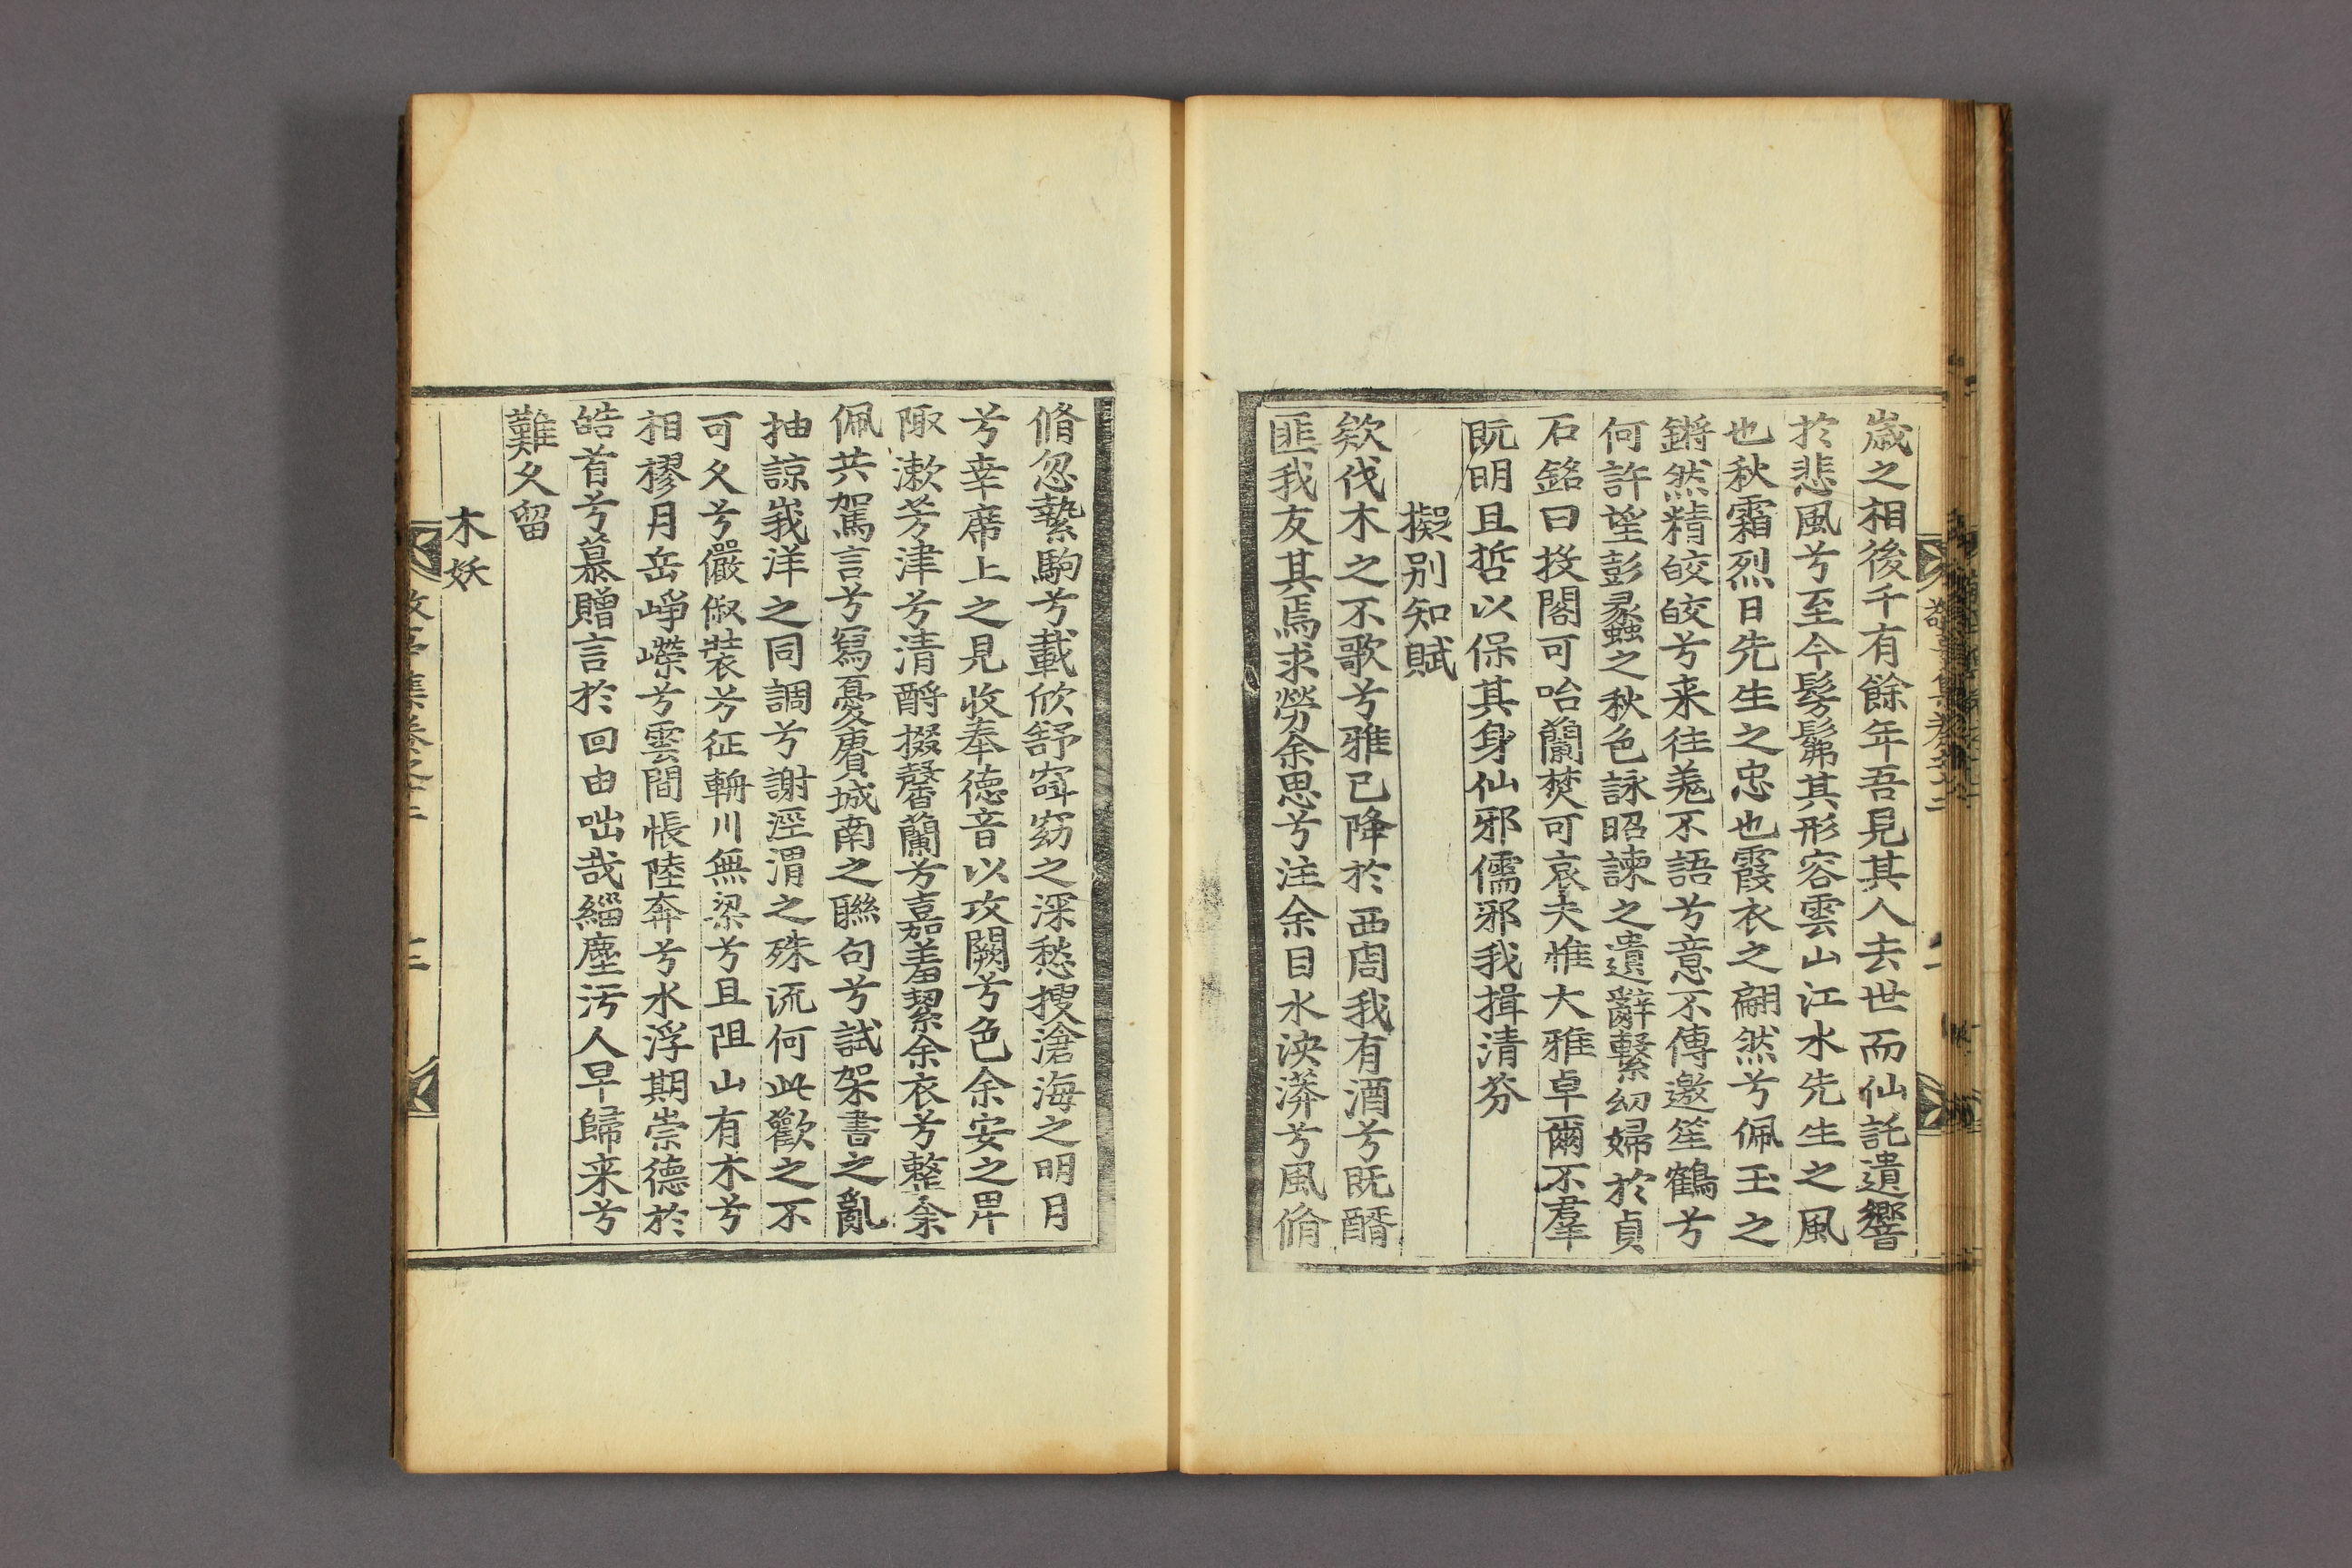 歲之相後千有餘年吾見其人去世而仙託遺響
於悲風兮至今髣髴其形容雲山江水先生之風
也秋霜烈日先生之忠也霞衣之翩然兮佩玉之
鏘然精皎皎兮来往羗不語兮意不傳邀笙鶴兮
何許望彭蠡之秋色詠昭諫之遺辭繫幼婦於貞
石銘曰投閣可咍蘭焚可哀夫惟大雅卓爾不羣
旣明且哲以保其身仙邪儒邪我揖清芬
擬别知賦
欸伐木之不歌兮雅已降於西周我有酒兮旣醑
匪我友其焉求勞余思兮注余目水泱漭兮風脩
脩忽縶駒兮載欣舒窅窈之深愁搜滄海之明月
兮幸席上之見收奉德音以攻闕兮色余安之畀
陬漱芳津兮清酹掇馨蘭兮嘉羞絜余衣兮整余
佩共駕言兮寫憂賡城南之聯句兮試架書之亂
抽諒峩洋之同調兮謝涇渭之殊流何此歡之不
可久兮儼俶裝兮征輈川無梁兮且阻山有木兮
相樛月岳崢嶸兮雲間悵陸奔兮水浮期崇德於
皓首兮慕贈言於回由咄哉緇塵汚人早歸来兮
難久留
木妖